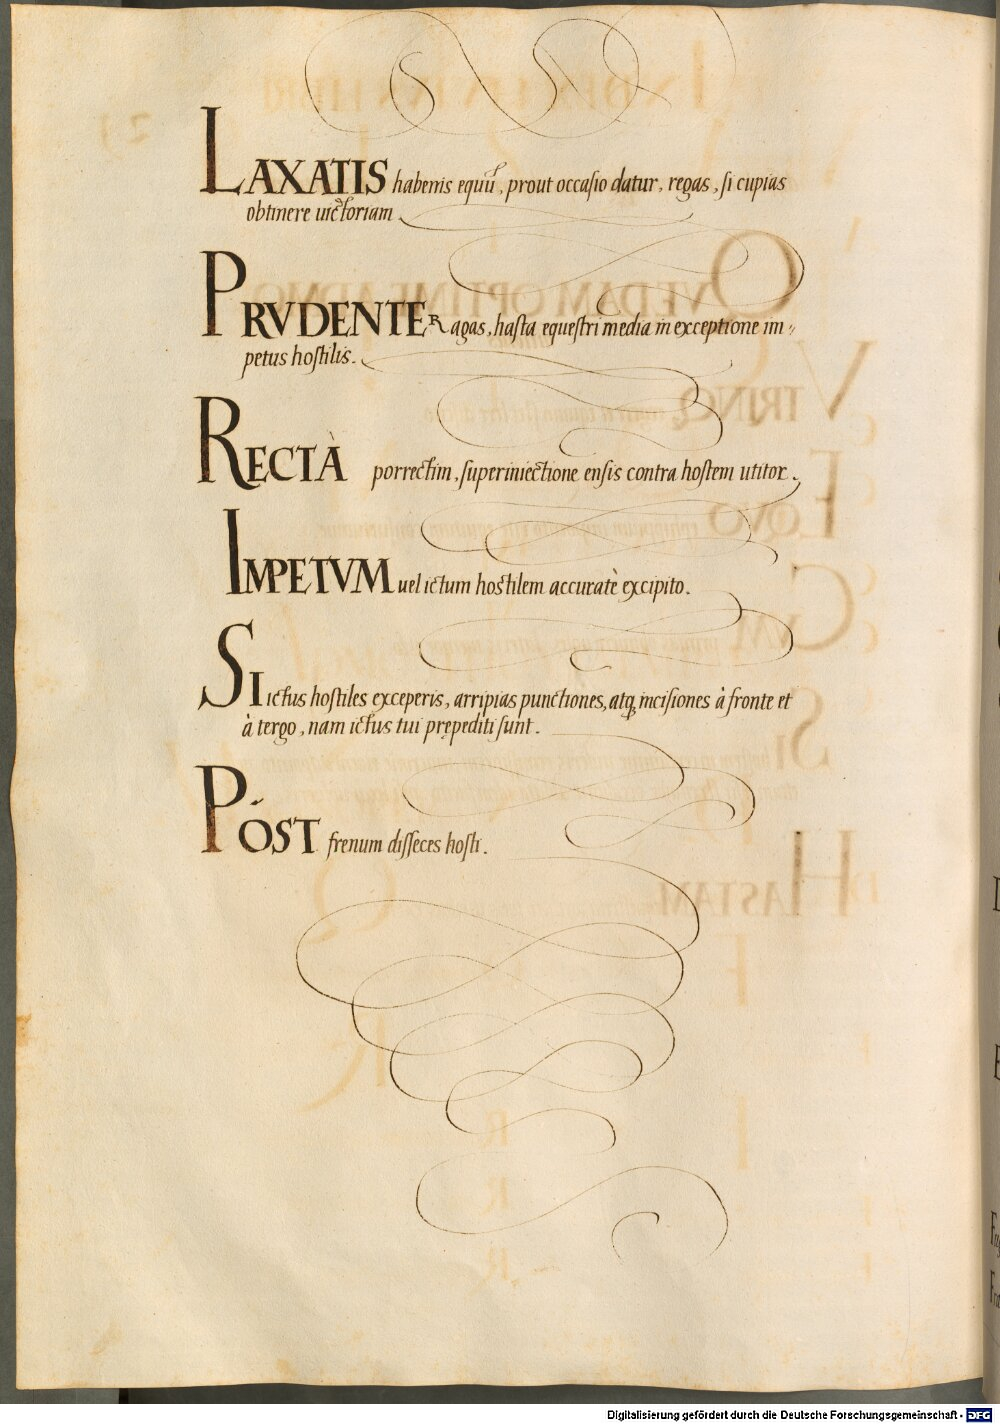 LAXATIS habenis equū, prout occasio datur, regas, si cupias
obtinere uictoriam
PRVDENTER agas, hasta equestri media in exceptione im-
petus hostilis.
RECTÀ porrectim, superiniectione ensis contra hostem utitor.
IMPETVM uel ictum hostilem accuratè excipito.
SI ictus hostiles exceperis, arripias punctiones, atq incisiones à fronte et
à tergo, nam ictus tui prępediti sunt.
PÓST frenum disseces hosti.
Digitalisierung gefördert durch die Deutsche Forschungsgemeinschaft - DFG